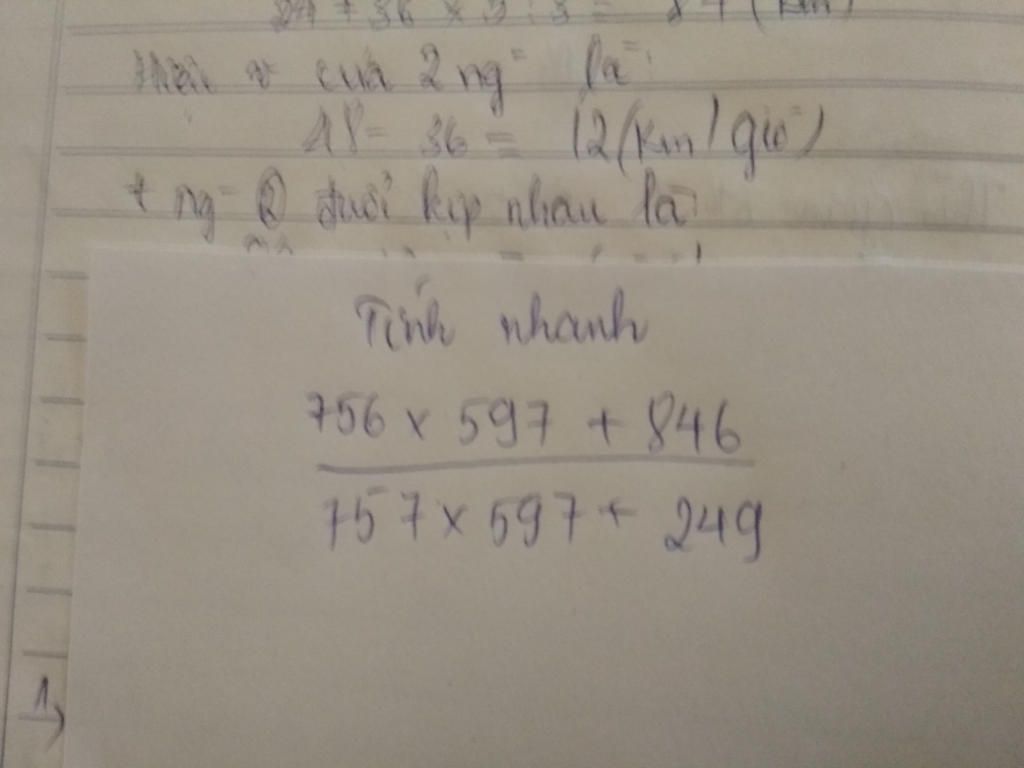 của 2 ng` là:
48 - 36 = 12 (km/giờ)
t ng` ② đuổi kịp nhau là
Tính nhanh
756 x 597 + 846
757 x 597 + 249
1